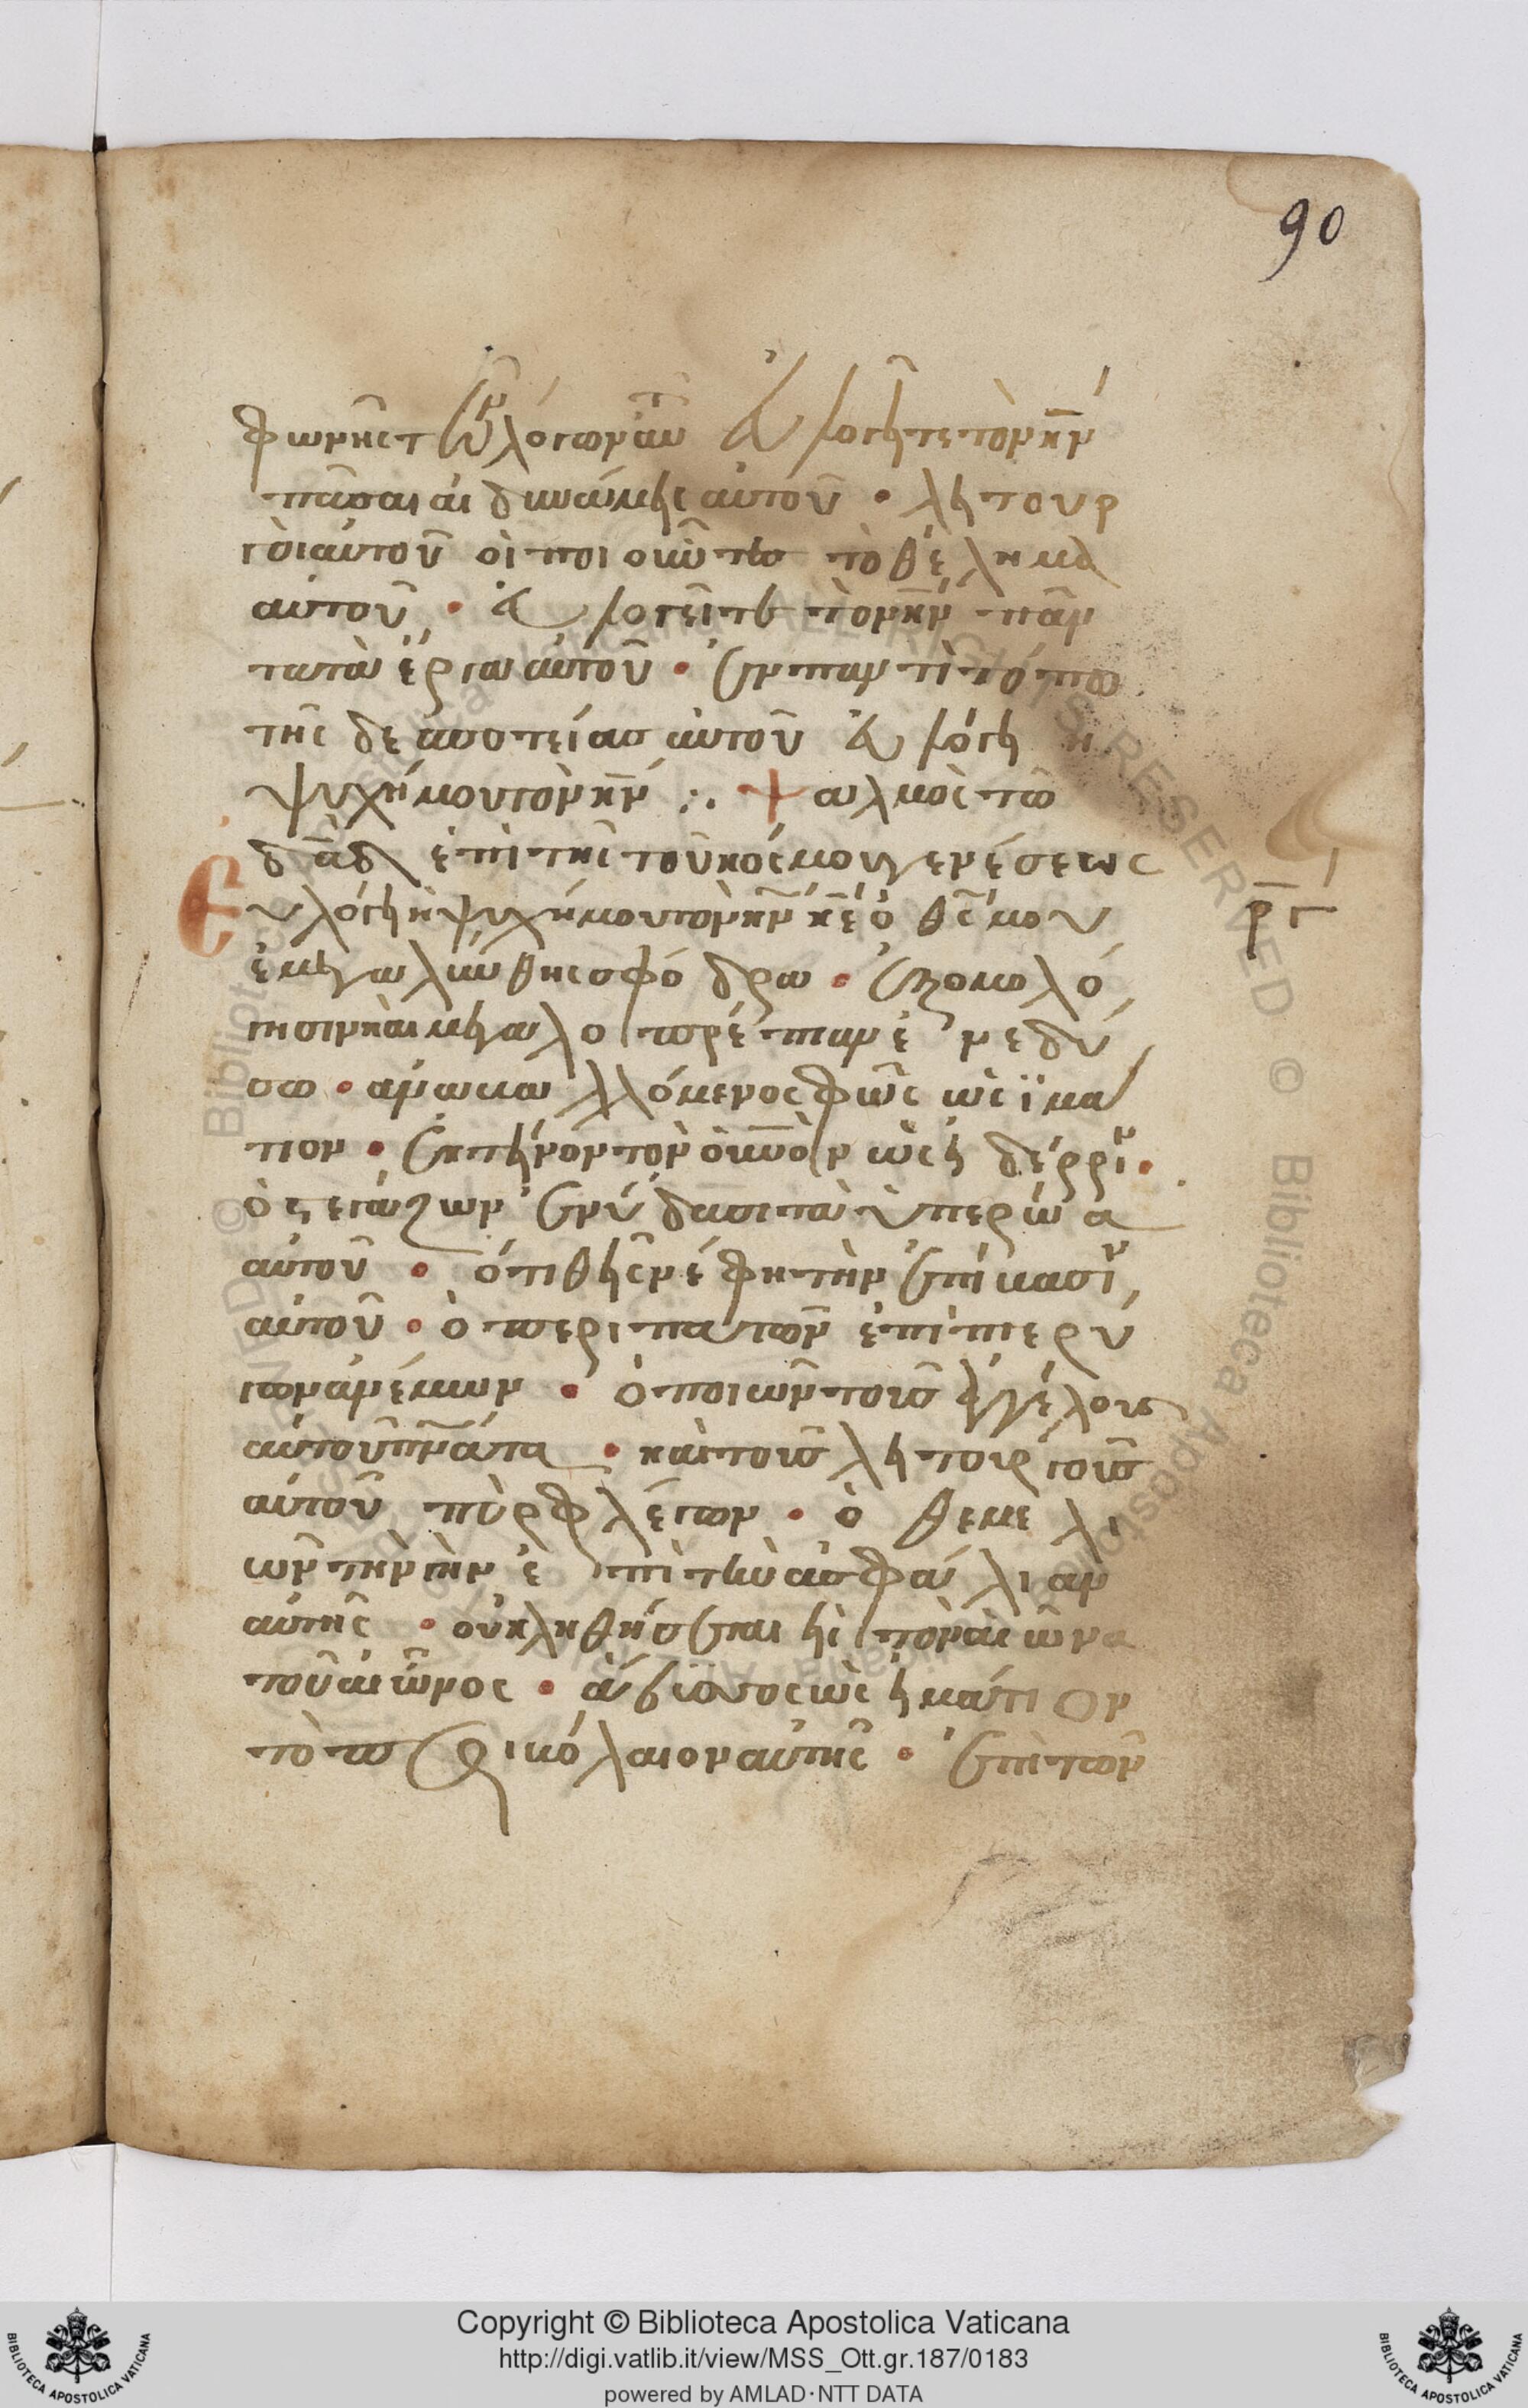 90
φωνῆς τῶν λόγων αὐτοῦ εὐλογεῖτε τὸν κν
πᾶσαι αἱ δυνάμεις αὐτοῦ · λητουρ
γοὶ αὐτοῦ οἱ ποιοῦντες τὸ θέλημα
αὐτοῦ · εὐλογεῖτε τὸν κν πάν
τα τὰ ἔργα αὐτοῦ · ἐν παντὶ τόπω
τῆς δεσποτείας αὐτοῦ εὐλόγει ἡ
ψυχή μου τὸν κν ⁘ ψαλμὸς τῶ
δαδ ἐπὶ τῆς τοῦ κόσμου γενέσεως
ργ
Εὐλόγει ἡ ψυχή μου τὸν κν κε ὁ θς μου
ἐμεγαλύνθης σφόδρα · ἐξομολό
γησιν καὶ μεγαλοπρέπιαν ἐνεδύ
σω · ἀναβαλλόμενος φῶς ὡς ἱμά
τιον · ἐκτείνων τὸν οὐνὸν ὡσεὶ δέρριν ·
ὁ στεγάζων ἐν ὕδασι τὰ ὑπερῶα
αὐτοῦ · ὁ τιθεὶς νέφη τὴν ἐπίβασιν
αὐτοῦ · ὁ περιπατῶν ἐπὶ πτερύ
γων ἀνέμων · ὁ ποιῶν τοὺς ἀγγέλους
αὐτοῦ πνατα · καὶ τοὺς λητουργοὺς
αὐτοῦ πῦρ φλέγον · ὁ θεμελι
ῶν τὴν γῆν ἐπὶ τὴν ἀσφάλιαν
αὐτῆς · οὐ κληθήσεται εἰς τὸν αἰῶνα
τοῦ αἰῶνος · ἄβυσσος ὡς εἱμάτιον
τὸ περιβόλαιον αὐτῆς · ἐπὶ τῶν
Copyright © Biblioteca Apostolica Vaticana
http://digi.vatlib.it/view/MSS_Ott.gr.187/0183
powered by AMLAD·NTT DATA